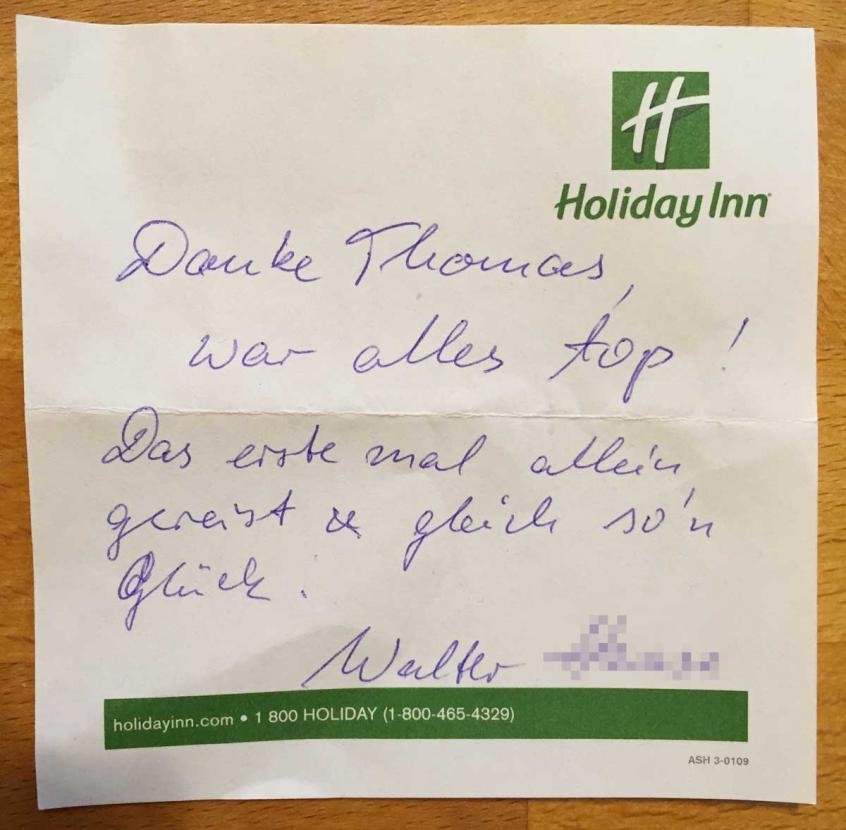 H
Holiday Inn
Danke Thomas,
war alles top!
Das erste mal allein
gereist & gleich so'n
Glück.
Walter
holidayinn.com • 1 800 HOLIDAY (1-800-465-4329)
ASH 3-0109